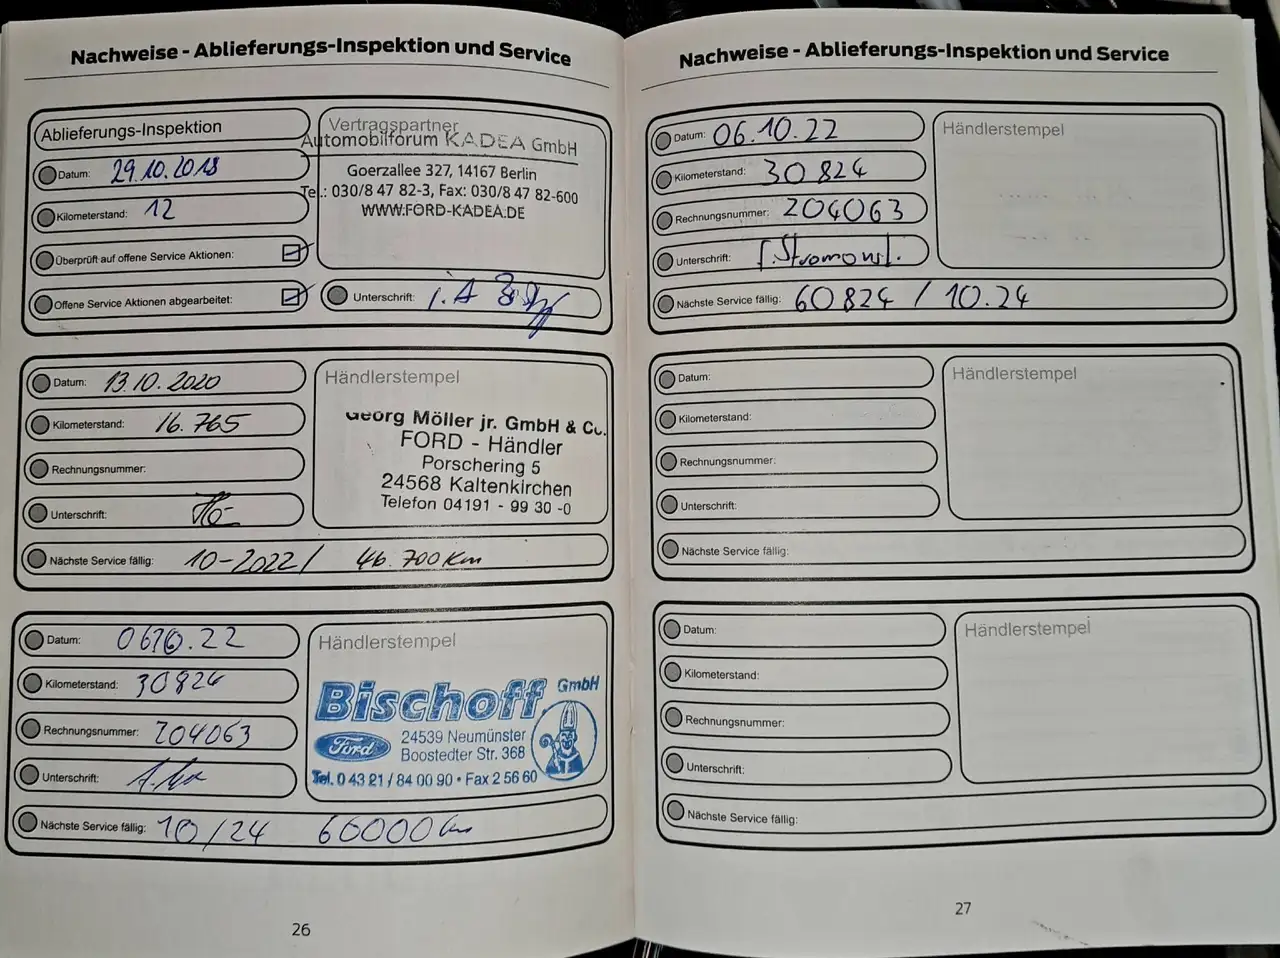 Nachweise - Ablieferungs-Inspektion und Service
Ablieferungs-Inspektion
Datum: 29.10.2018
Kilometerstand: 12
Überprüft auf offene Service Aktionen:
Offene Service Aktionen abgearbeitet:
Vertragspartner
Automobilforum KADEA GmbH
Goerzallee 327, 14167 Berlin
Tel.: 030/8 47 82-3, Fax: 030/8 47 82-600
WWW.FORD-KADEA.DE
Unterschrift: i.A
Datum: 13.10.2020
Kilometerstand: 16.765
Rechnungsnummer:
Unterschrift:
Händlerstempel
Georg Möller jr. GmbH & Co.
FORD - Händler
Porschering 5
24568 Kaltenkirchen
Telefon 04191 - 99 30 -0
Nächste Service fällig: 10-2022/ 46.700 Km
Datum: 0610.22
Kilometerstand: 30824
Rechnungsnummer: 204063
Unterschrift:
Händlerstempel
Bischoff GmbH
Ford
24539 Neumünster
Boostedter Str. 368
Tel. 0 43 21 / 84 00 90 • Fax 2 56 60
Nächste Service fällig: 10/24 60000 km
26
Nachweise - Ablieferungs-Inspektion und Service
Datum: 06.10.22
Kilometerstand: 30824
Rechnungsnummer: 204063
Unterschrift:
Händlerstempel
Nächste Service fällig: 60824 / 10.24
Datum:
Kilometerstand:
Rechnungsnummer:
Unterschrift:
Händlerstempel
Nächste Service fällig:
Datum:
Kilometerstand:
Rechnungsnummer:
Unterschrift:
Händlerstempel
Nächste Service fällig:
27